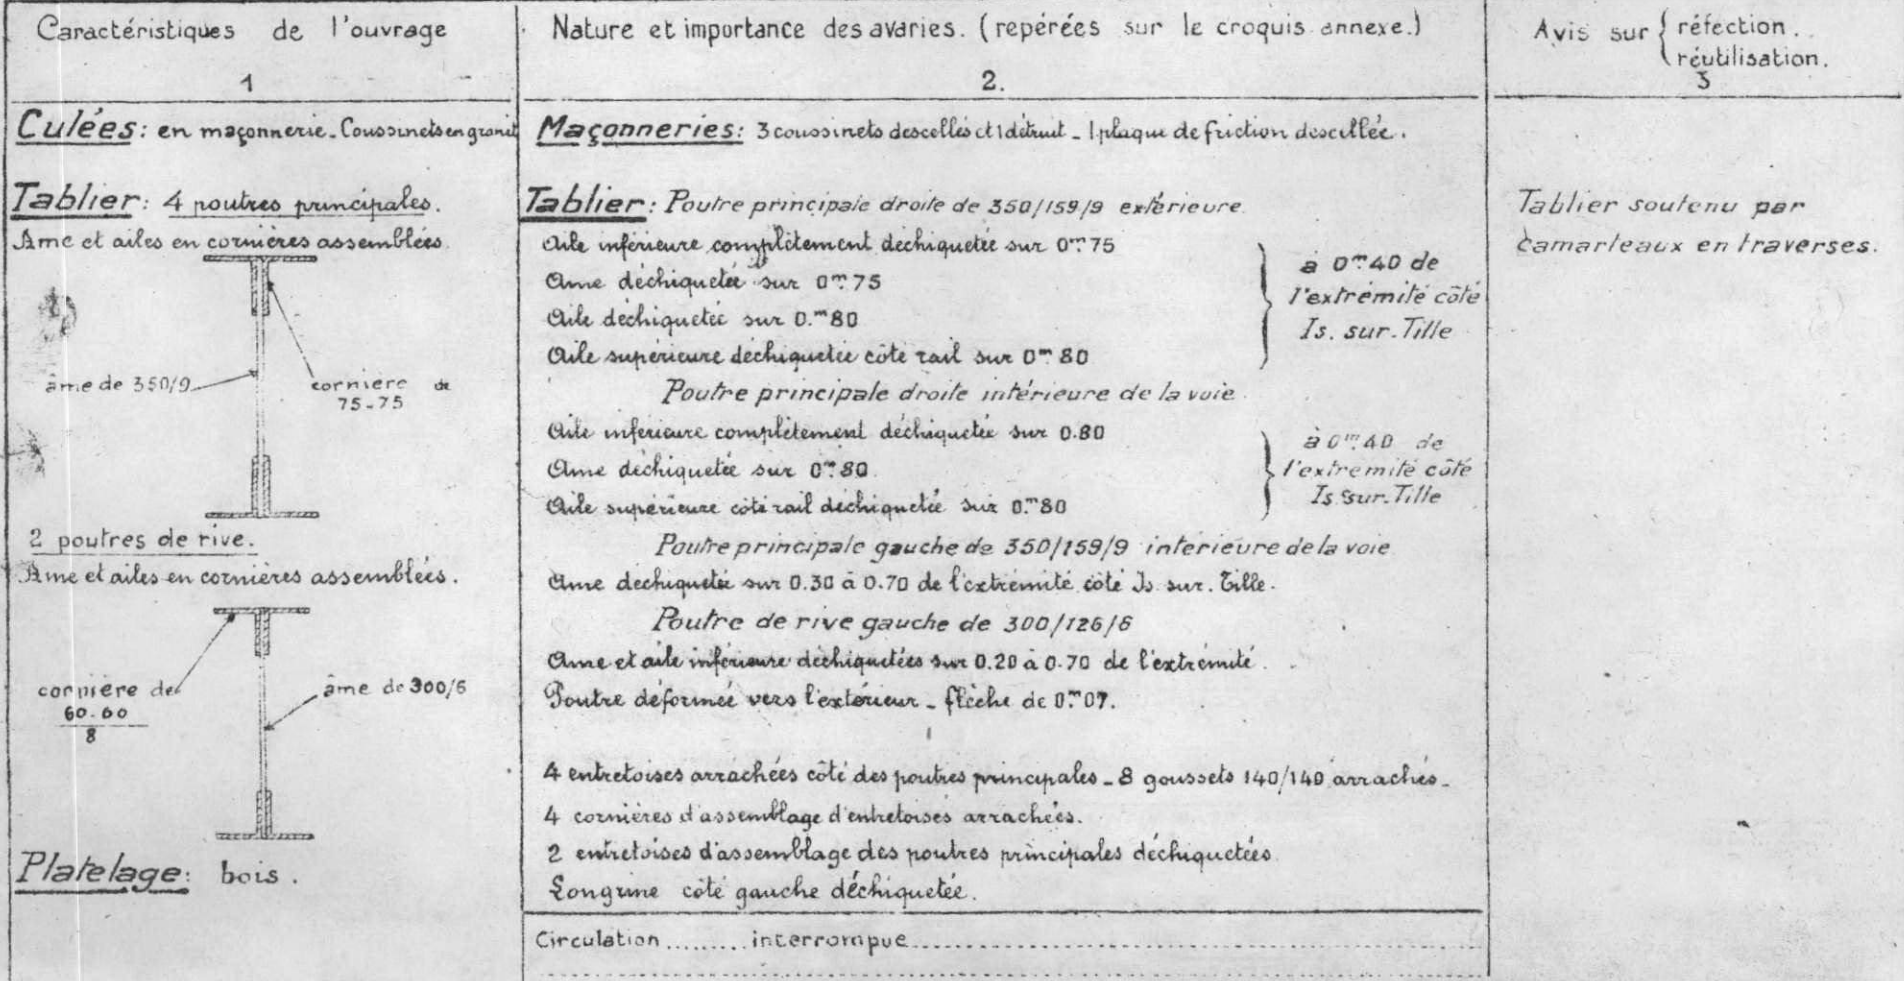 Caractéristiques de l'ouvrage
1
Culées: en maçonnerie. Coussinets en granit
Tablier: 4 poutres principales.
Ame et ailes en cornières assemblées.
âme de 350/9
cornière de
75-75
2 poutres de rive.
Ame et ailes en cornières assemblées.
cornière de
60.60
8
âme de 300/6
Platelage: bois.
Nature et importance des avaries. (repérées sur le croquis annexe.)
2.
Maçonneries: 3 coussinets descellés et 1 détruit - 1 plaque de friction descellée.
Tablier: Poutre principale droite de 350/159/9 extérieure
Aile inférieure complètement déchiquetée sur 0m.75
Ame déchiquetée sur 0m.75
Aile déchiquetée sur 0.m80
Aile supérieure déchiquetée côté rail sur 0m.80
à 0m.40 de
l'extrémité côté
Is. sur. Tille
Poutre principale droite intérieure de la voie.
Aile inférieure complètement déchiquetée sur 0.80
Ame déchiquetée sur 0m.80
Aile supérieure côté rail déchiquetée sur 0.m80
à 0m.40 de
l'extrémité côté
Is. sur. Tille
Poutre principale gauche de 350/159/9 intérieure de la voie
Ame déchiquetée sur 0.30 à 0.70 de l'extrémité côté Is. sur. Tille.
Poutre de rive gauche de 300/126/6
Ame et aile inférieure déchiquetées sur 0.20 à 0.70 de l'extrémité.
Poutre déformée vers l'extérieur - flèche de 0.m07.
4 entretoises arrachées côté des poutres principales - 8 goussets 140/140 arrachés -
4 cornières d'assemblage d'entretoises arrachées.
2 entretoises d'assemblage des poutres principales déchiquetées
Longrine côté gauche déchiquetée.
Circulation ......... interrompue
Avis sur { réfection.
réutilisation.
3
Tablier soutenu par
camarteaux en traverses.